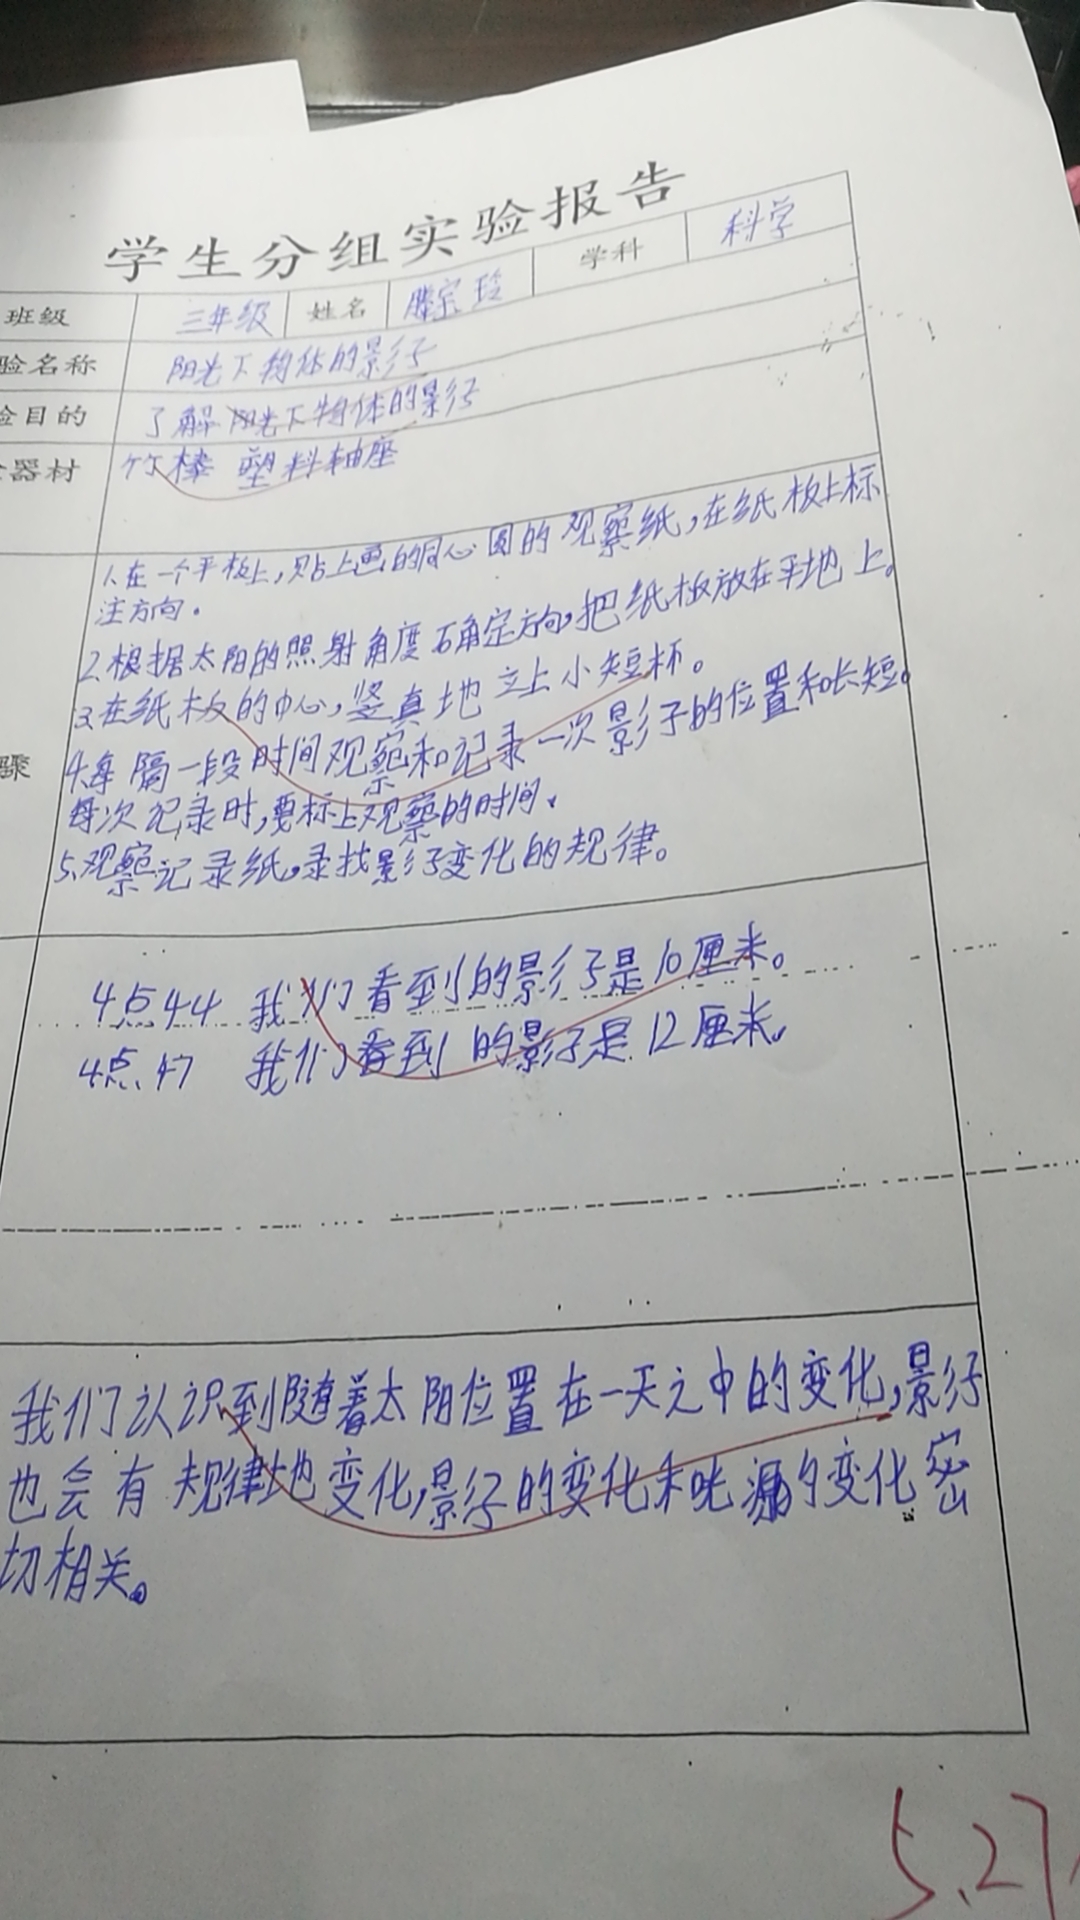 学生分组实验报告
班级 三年级 姓名 滕宗玲 学科 科学
验名称 阳光下物体的影子
验目的 了解阳光下物体的影子
器材 竹棒 塑料轴座
1.在一个平板上,贴上画的同心圆的观察纸,在纸板上标
注方向。
2.根据太阳的照射角度确定方向,把纸板放在平地上。
3.在纸板的中心,竖真地立上小短杯。
骤
4.每隔一段时间观察和记录一次影子的位置和长短。
每次记录时,要标上观察的时间、
5.观察记录纸,录找影子变化的规律。
4点44 我们看到的影子是10厘米。
4点47 我们看到的影子是12厘米。
我们认识到随着太阳位置在一天之中的变化,影子
也会有规律地变化,影子的变化和 变化密
切相关。
5.27